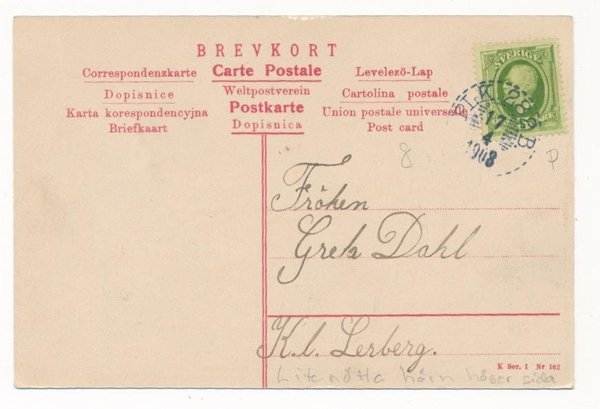 BREVKORT
Correspondenzkarte Carte Postale Levelező-Lap
Dopisnice Weltpostverein Cartolina postale
Karta korespondencyjna Postkarte Union postale universelle
Briefkaart Dopisnica Post card
SVERIGE
PLK 283 B
17
4
1908
8
P
Fröken
Greta Dahl
K.l. Lerberg.
K Ser. 1 Nr 162
Lite nötta hörn höger sida